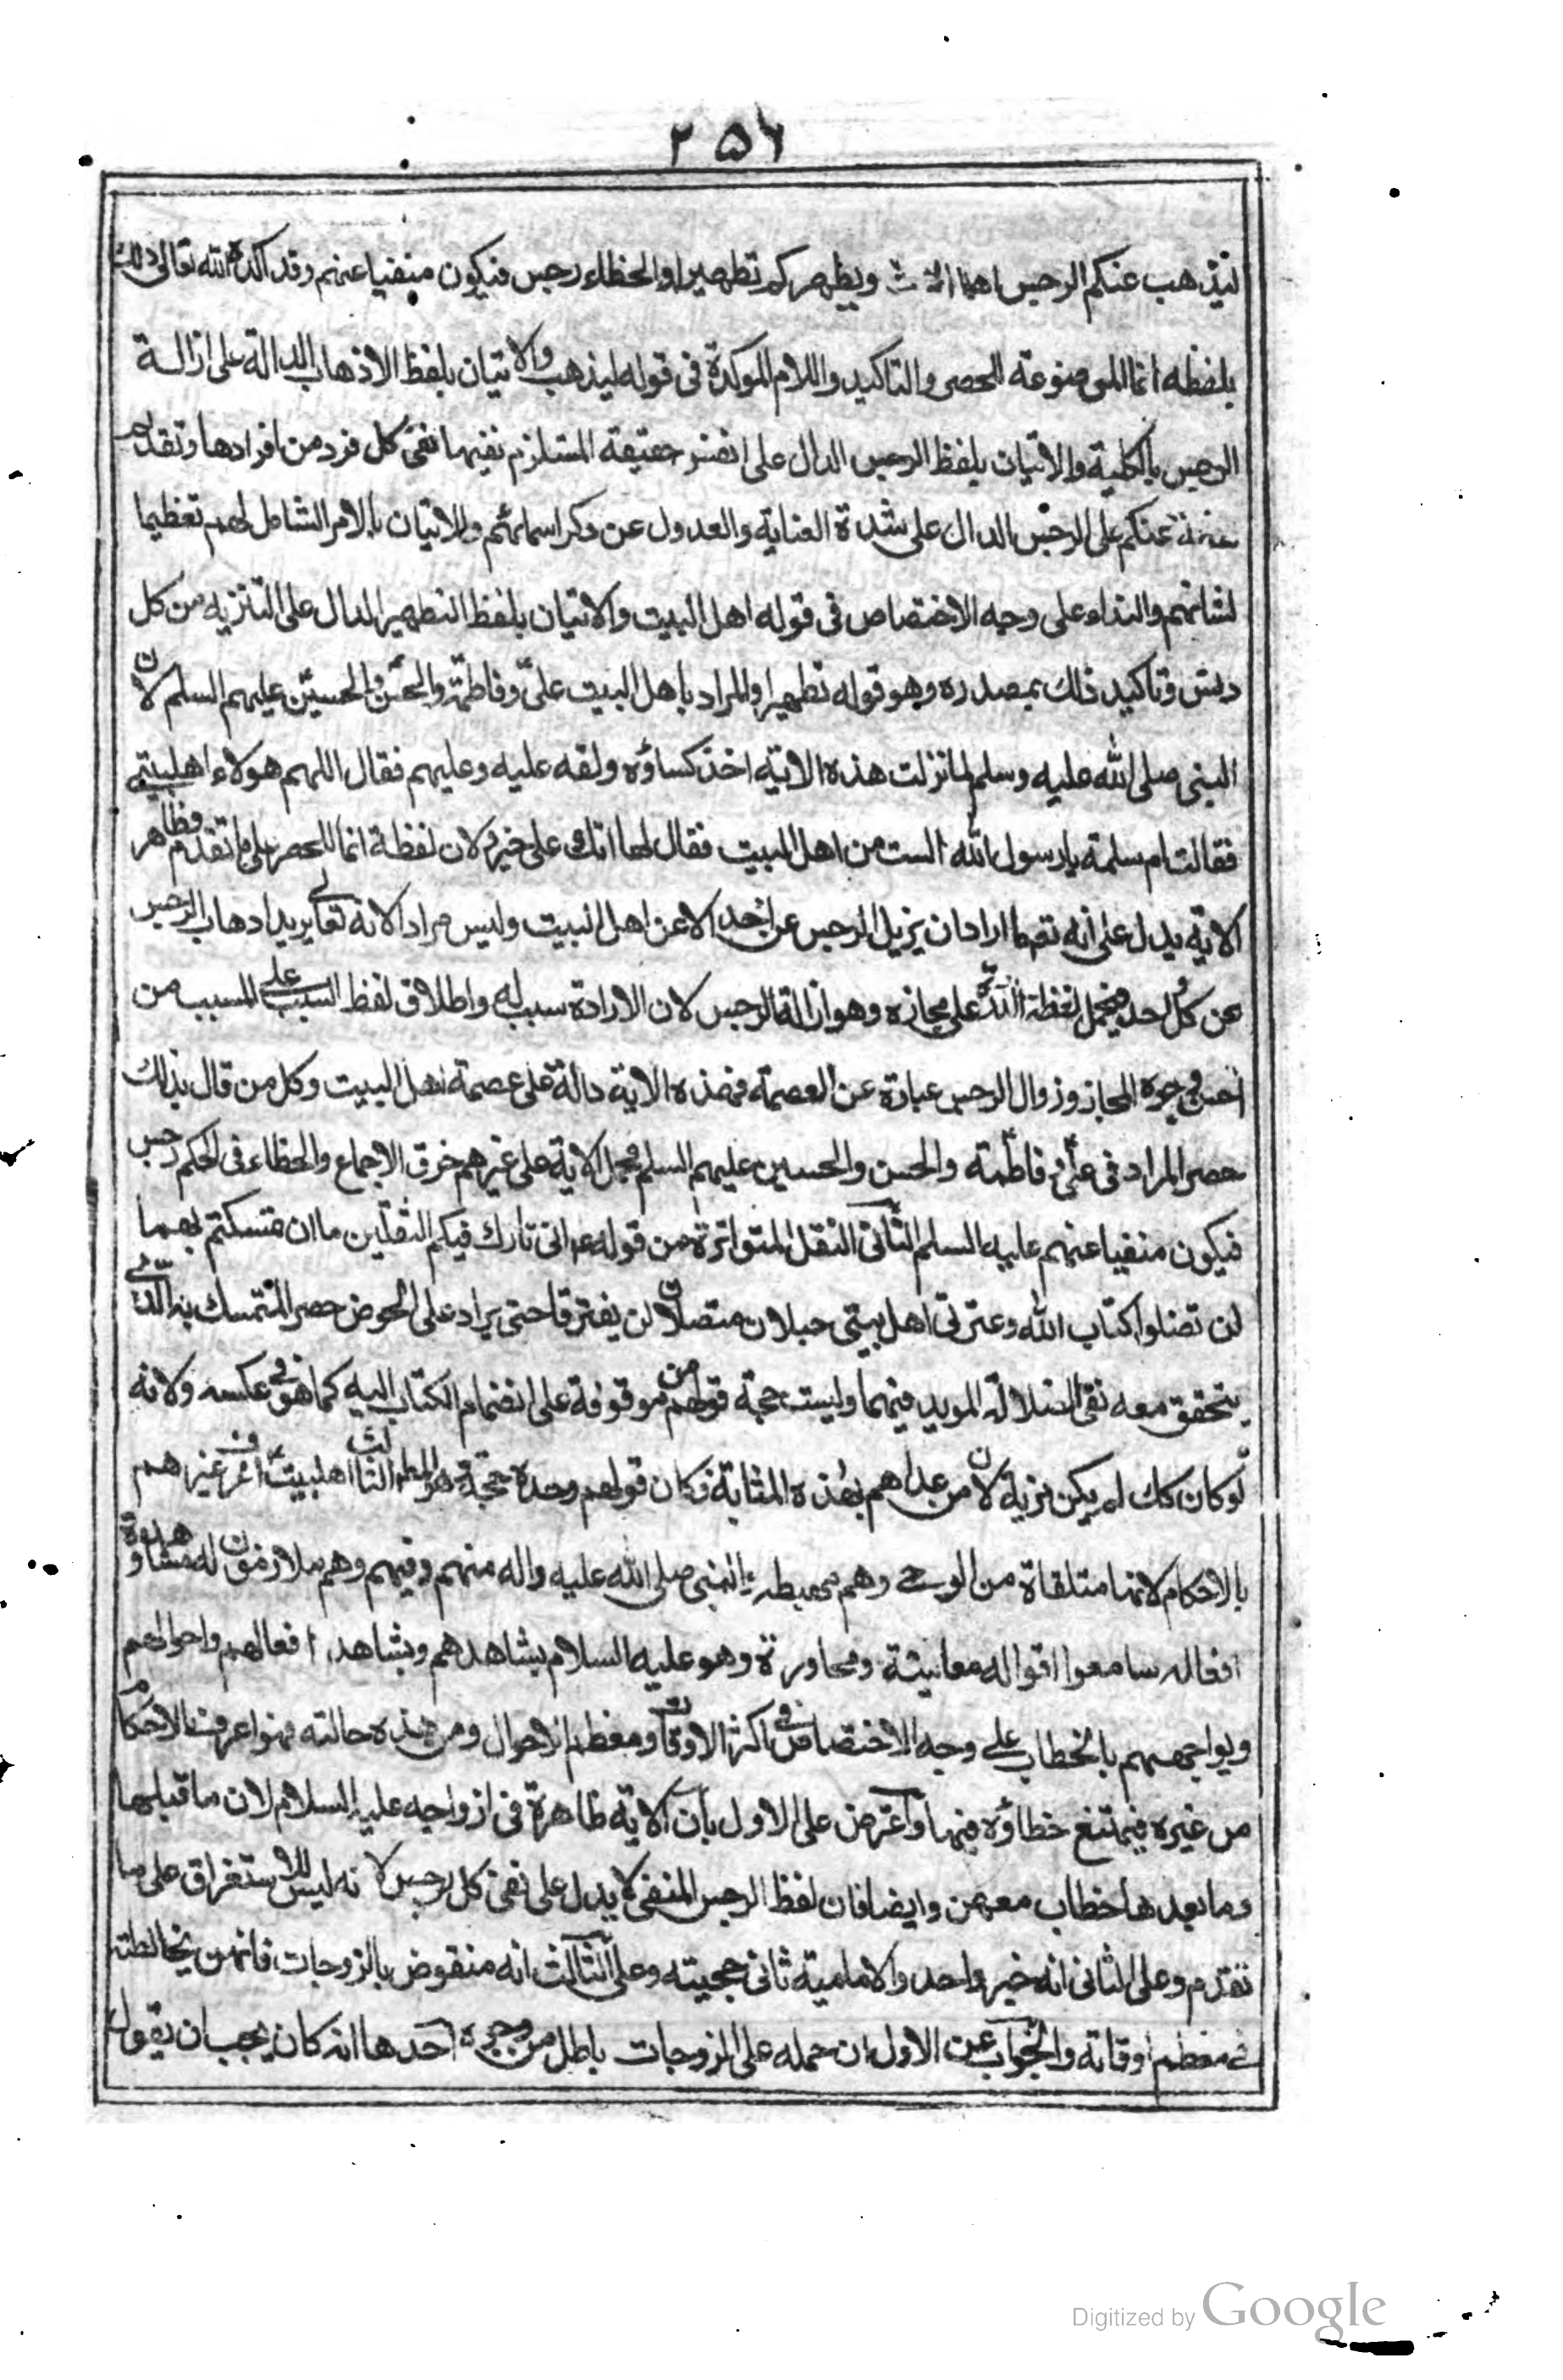 ۲۵۶
ليذهب عنكم الرجس اهل البيت ويطهركم تطهيرا والخطاء رجس فيكون منفيا عنهم وقد اكده الله تعالى ذلك
بلفظه انما الموضوعة للحصر والتاكيد واللام الموكدة فى قوله ليذهب والاتيان بلفظ الاذهاب الدالة على ازالة
الرجس بالكلية والاتيان بلفظ الرجس الدال على نفس حقيقة المستلزم نفيها نفى كل فرد من افرادها وتقديم
عنكم على الرجس الدال على شدة العناية والعدول عن ذكر اسمائهم والاتيان بالامر الشامل لهم تعظيما
لشانهم والنداء على وجه الاختصاص فى قوله اهل البيت والاتيان بلفظ التطهير الدال على التنزيه من كل
دنس وتاكيد ذلك بمصدره وهو قوله تطهيرا والمراد باهل البيت على وفاطمة والحسن والحسين عليهم السلم لان
النبى صلى الله عليه وسلم لما نزلت هذه الاية اخذ كساؤه ولفه عليه وعليهم فقال اللهم هولاء اهلبيتى
فقالت ام سلمة يا رسول الله الست من اهل البيت فقال لها انك على خير ولان لفظة انما للحصر على ما تقدم فظاهر
الاية يدل على انه تعالى اراد ان يزيل الرجس عن احد الا عن اهل البيت وليس مرادا لانه تعالى يريد اذهاب الرجس
عن كل احد فيحمل لفظة على مجازه وهو ازالة الرجس لان الارادة سبب له واطلاق لفظ السبب على المسبب من
احسن وجوه المجاز وزوال الرجس عبارة عن العصمة فهذه الاية دالة على عصمة اهل البيت وكل من قال بذلك
حصر المراد فى على وفاطمة والحسن والحسين عليهم السلم فحمل الاية على غيرهم خرق الاجماع والخطاء فى الحكم رجس
فيكون منفيا عنهم عليه السلم الثانى النقل المتواترة من قوله ع انى تارك فيكم الثقلين ما ان تمسكتم بهما
لن تضلوا كتاب الله وعترتى اهل بيتى حبلان متصلان لن يفترقا حتى يردا على الحوض حصر المتمسك به الذى
يتحقق معه نفى الضلالة المويد فيهما وليست حجة قولهم موقوفة على انضمام الكتاب اليه كما هو فى عكسه ولانه
لو كان كك لم يكن مزية لان من عداهم بهذه المثابة فكان قولهم وحده حجة هو المط الثالث اهلبيت اعرف من غيرهم
بالاحكام لانها متلقاة من الوحى وهم مهبطه والنبى صلى الله عليه واله منهم وفيهم وهم ملازمون له مشاهدة
افعاله سامعوا اقواله معاينة ومحاورة وهو عليه السلام يشاهدهم ويشاهد افعالهم واحوالهم
ويواجههم بالخطاب على وجه الاختصاص فى اكثر الاوقات ومعظم الاحوال ومن هذه حالته فهو اعرف بالاحكام
من غيره فيمتنع خطاؤه فيها واعترض على الاول بان الاية ظاهرة فى ازواجه عليه السلام لان ما قبلها
وما بعدها خطاب معهن وايضا فان لفظ الرجس المنفى لا يدل على نفى كل رجس لانه ليس للاستغراق على ما
تقدم وعلى الثانى انه خبر واحد والامامية ثانى حجيته وعلى الثالث انه منقوض بالزوجات فانهن يخالطنه
فى معظم اوقاته والجواب عن الاول ان حمله على الزوجات باطل من وجوه احدها انه كان يجب ان يقول
Digitized by Google